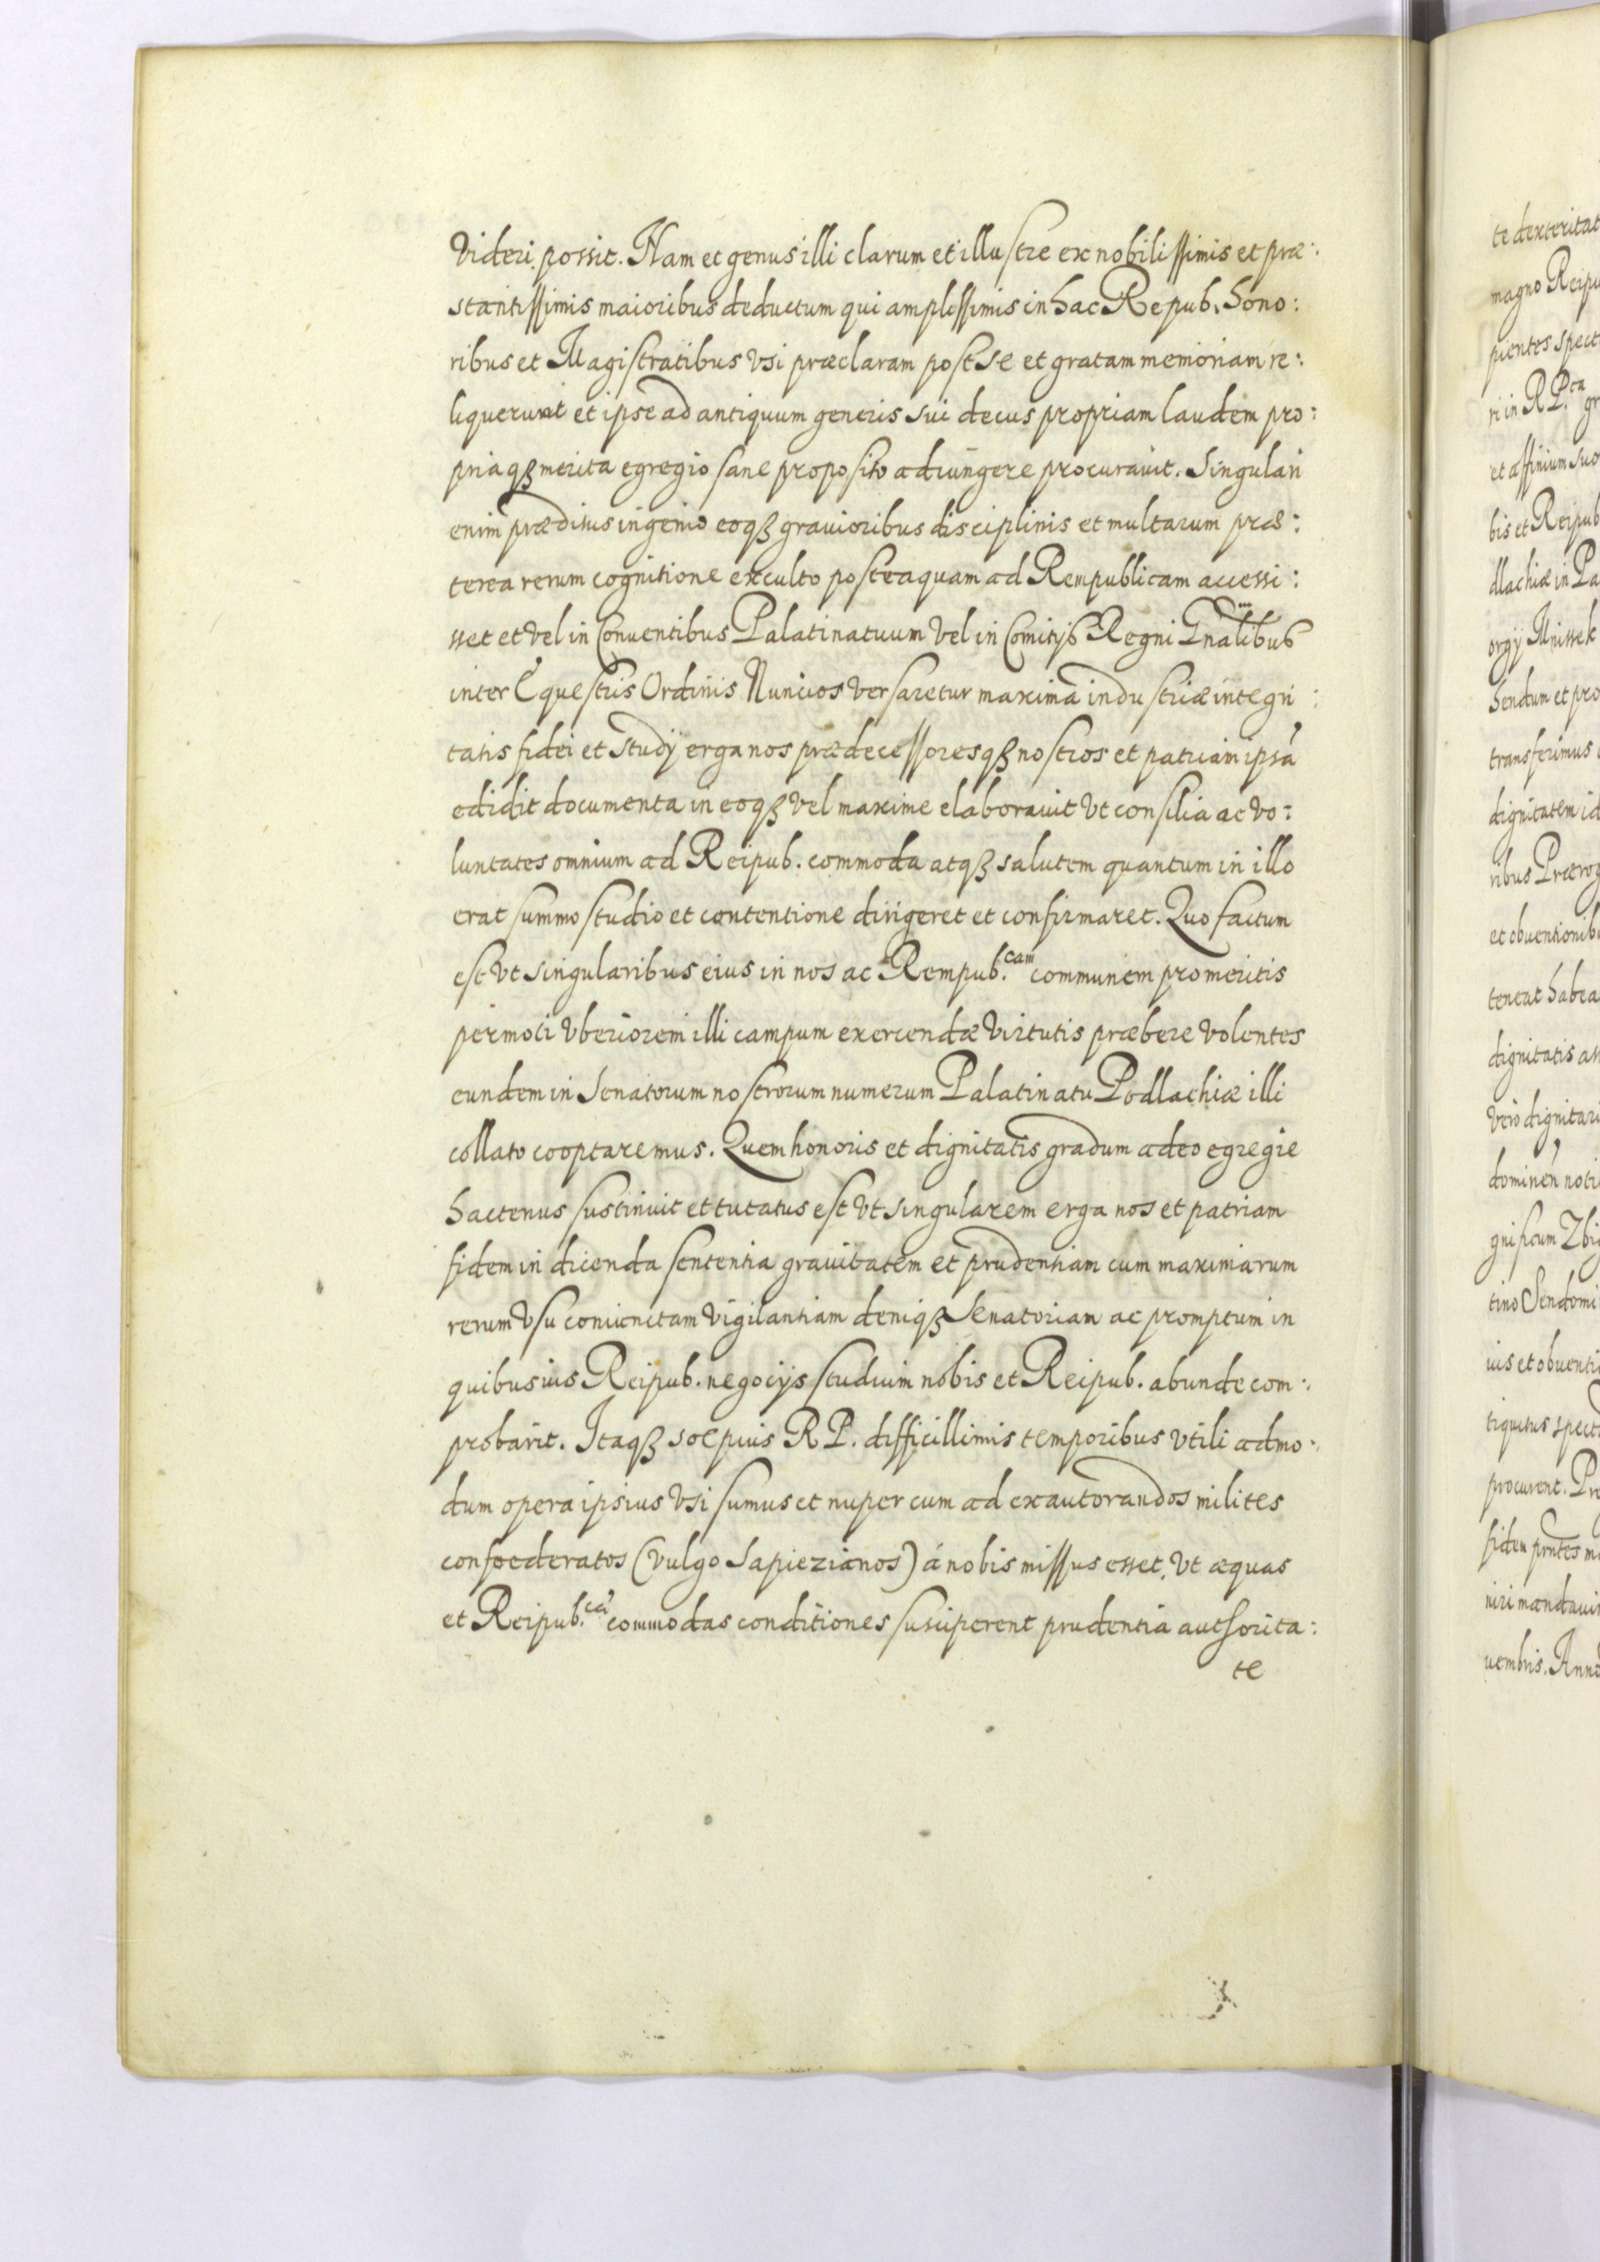 Videri possit. Nam et genus illi clarum et illustre ex nobilissimis et præ:
stantissimis maioribus deductum qui amplissimis in hac Repub. hono:
ribus et Magistratibus vsi præclaram post se et gratam memoriam re:
liquerunt et ipse ad antiquum generis sui decus propriam laudem pro:
priaqȝ merita egregio sane proposito adiungere procurauit. Singulari
enim præditus ingenio eoqȝ grauioribus disciplinis et multarum præ:
terea rerum cognitione exculto posteaquam ad Rempublicam accessi:
sset et vel in Conuentibus Palatinatuum vel in Comitijs Regni Gnalibus
inter Equestris Ordinis Nuncios versaretur maxima industriæ integri:
tatis fidei et studij erga nos prædecessoresqȝ nostros et patriam ipsã
edidit documenta in eoqȝ vel maxime elaborauit vt consilia ac vo:
luntates omnium ad Reipub. commoda atqȝ salutem quantum in illo
erat summo studio et contentione dirigeret et confirmaret. Quo factum
est vt singularibus eius in nos ac Rempub.cam communem promeritis
permoti vberiorem illi campum exercendæ virtutis præbere volentes
eundem in Senatorum nostrorum numerum Palatinatu Podlachiæ illi
collato cooptaremus. Quem honoris et dignitatis gradum adeo egregie
hactenus sustinuit et tutatus est vt singularem erga nos et patriam
fidem in dicenda sententia grauitatem et prudentiam cum maximarum
rerum vsu coniunctam vigilantiam deniqȝ Senatoriam ac promptum in
quibusuis Reipub. negocijs studium nobis et Reipub. abunde com:
probarit. Itaqȝ sæpius R P. difficillimis temporibus vtili admo:
dum opera ipsius vsi sumus et nuper cum ad exautorandos milites
confoederatos (vulgo Sapiezianos) á nobis missus esset, vt æquas
et Reipub.cæ commodas conditiones susciperent prudentia authorita:
te
te dexteritat
magno Reipu
pientes spect
ri in R P.ca gr
et affinium suo
bis et Reipub
dlachiæ in Pa
orgij Mnissek
hendum et pro
transferimus
dignitatem id
ribus Prærog
et obuentionib
teneat habea
dignitatis an
vero dignitari
dominen noti
gnificum Zbig
tino Sendomi
uis et obuenti
tiquitus spect
procurent. Pr
fidem prntes m
niri mandaui
uembris. Anno